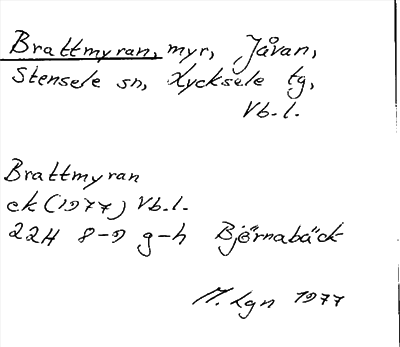 Brattmyran, myr, Jåvan,
Stensele sn, Lycksele tg,
Vb.l.
Brattmyran
ek (1977) Vb.l.
22H 8-9 g-h Björnabäck
M. Lgn 1977